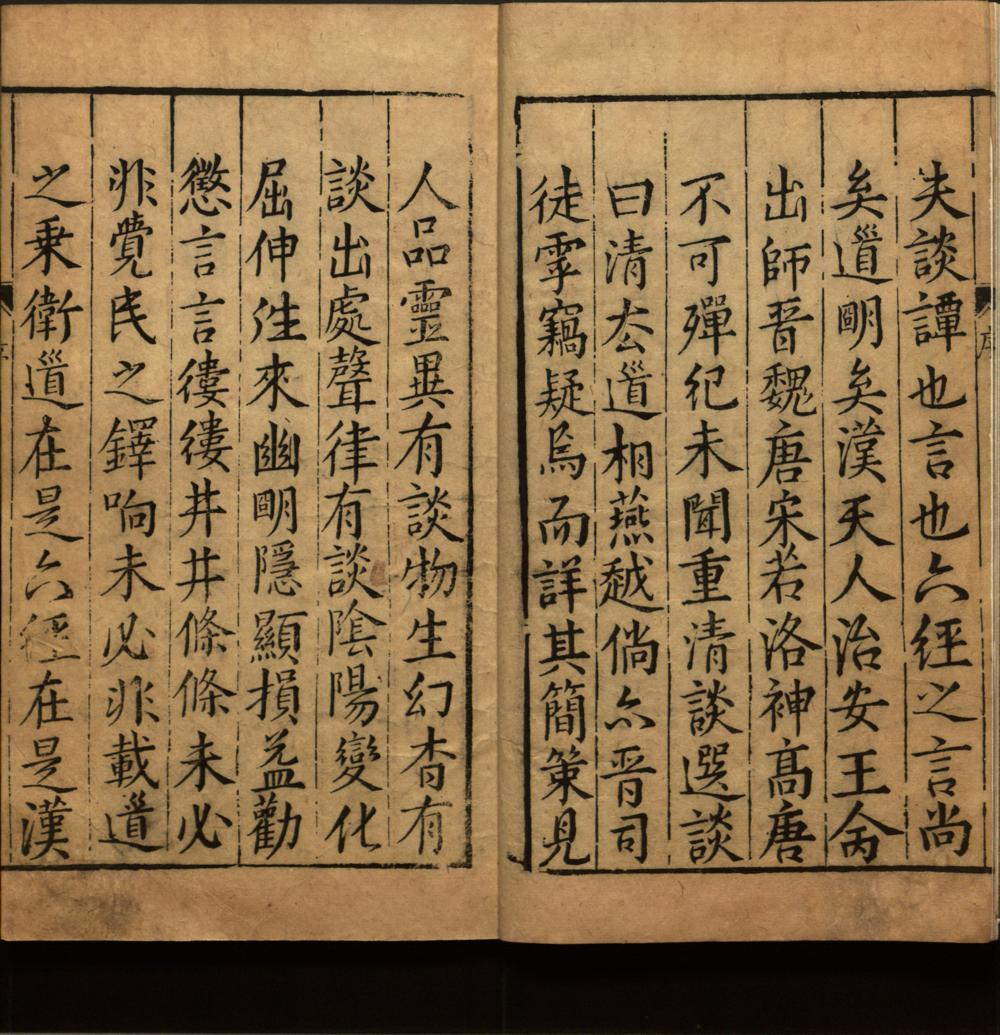 夫談譚也言也六經之言尚
矣道眀矣漢天人治安王命
出師晋魏唐宋若洛神髙唐
不可殫紀未聞重清談選談
曰清厺道相燕越倘亦晋司
徒雩竊疑焉而詳其簡策見
序
人品靈異有談物生幻杳有
談出處聲律有談隂陽變化
屈伸徃來幽眀隱顯損益勸
懲言言縷縷井井條條未必
非覺民之鐸响未必非載道
之乗衛道在是六經在是漢